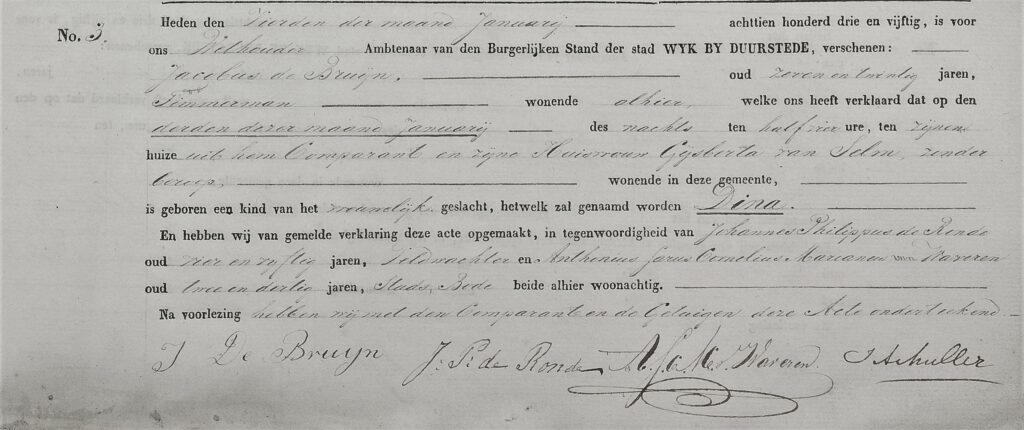 Heden den Vierden der maand Januarij achttien honderd drie en vijftig, is voor
No. 3.
ons Wethouder Ambtenaar van den Burgerlijken Stand der stad WYK BY DUURSTEDE, verschenen:
Jacobus de Bruijn. oud zeven en twintig jaren,
Timmerman wonende alhier, welke ons heeft verklaard dat op den
derden dezer maand Januarij des nachts ten half vier ure, ten zijnen
huize uit hem Comparant en zijne Huisvrouw Gijsberta van Selm, zonder
beroep, wonende in deze gemeente,
is geboren een kind van het vrouwelijk geslacht, hetwelk zal genaamd worden Dina.
En hebben wij van gemelde verklaring deze acte opgemaakt, in tegenwoordigheid van Johannes Philippus de Ronde
oud vier en vyftig jaren, Veldwachter en Anthonius Cornelius van Waveren
oud twee en dertig jaren, Stads Bode beide alhier woonachtig.
Na voorlezing hebben wij met den Comparant en de Getuigen deze Acte onderteekend
J De Bruijn J. P. de Ronde Waveren